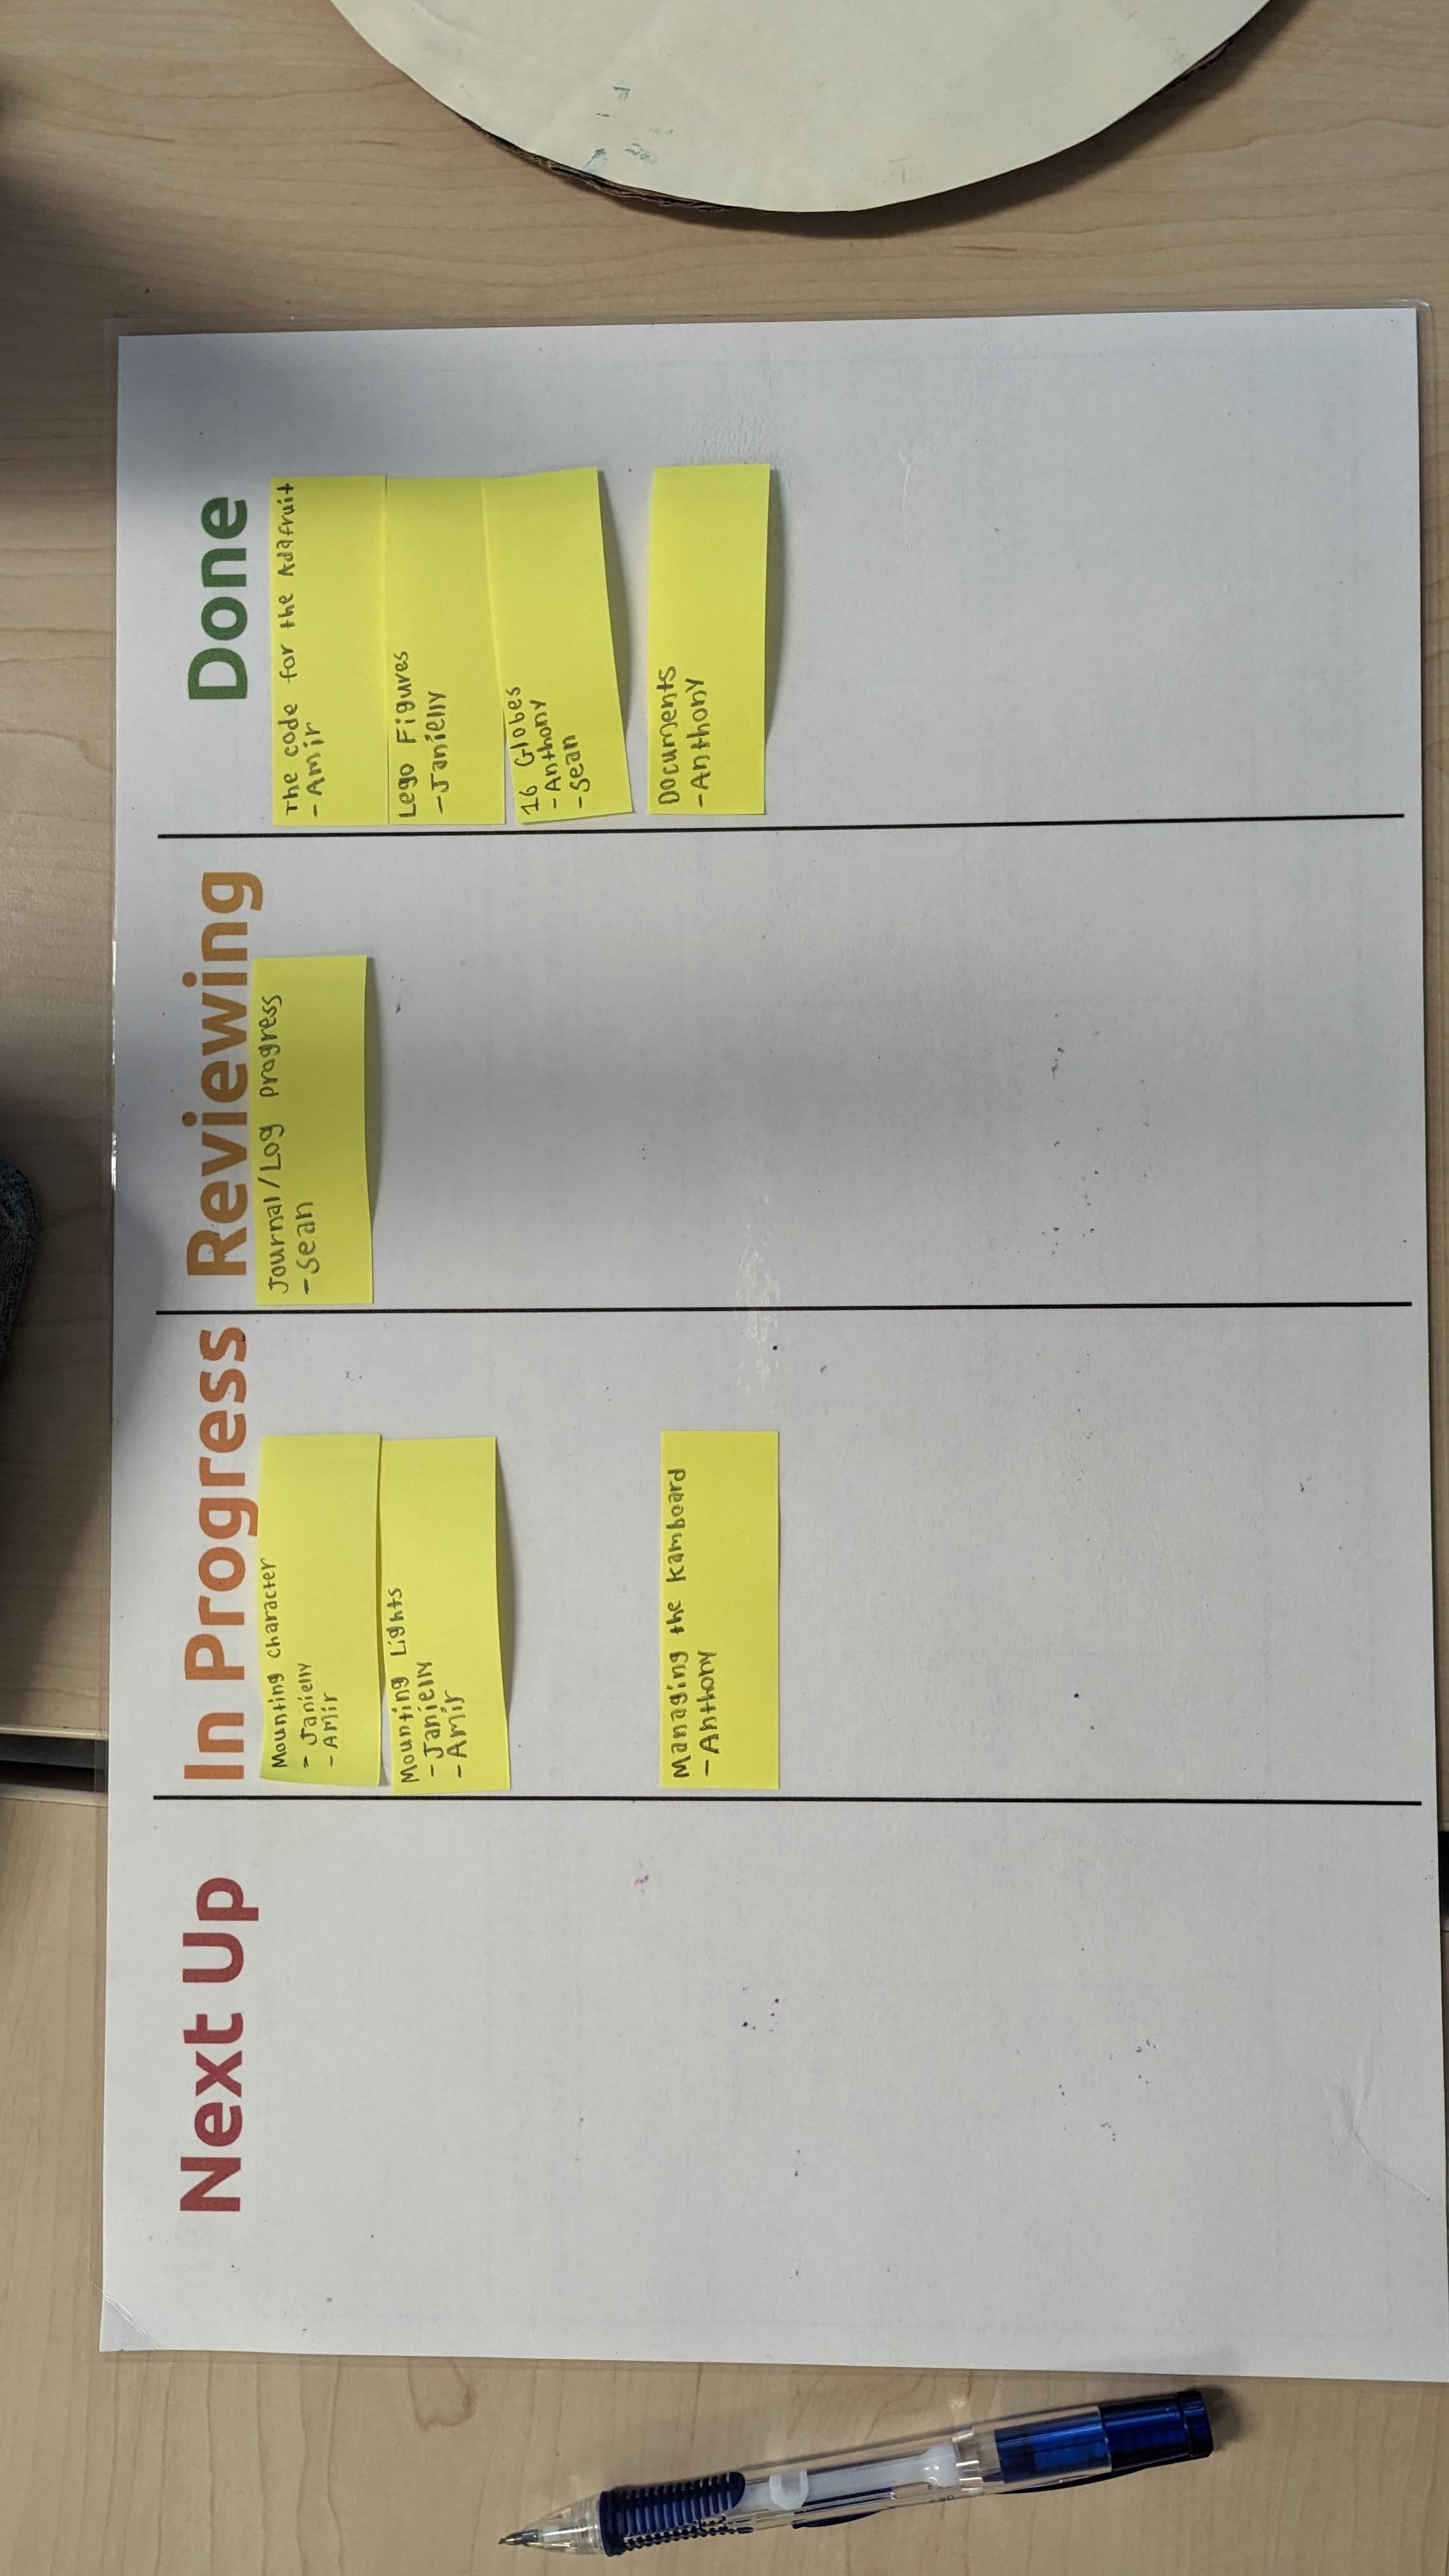 Next Up
In Progress
Mounting character
- Janielly
- Amir
Mounting Lights
- Janielly
- Amir
Managing the Kamboard
- Anthony
Reviewing
Journal/Log progress
- Sean
Done
The code for the Adafruit
- Amir
Lego Figures
- Janielly
16 Globes
- Anthony
- Sean
Documents
- Anthony